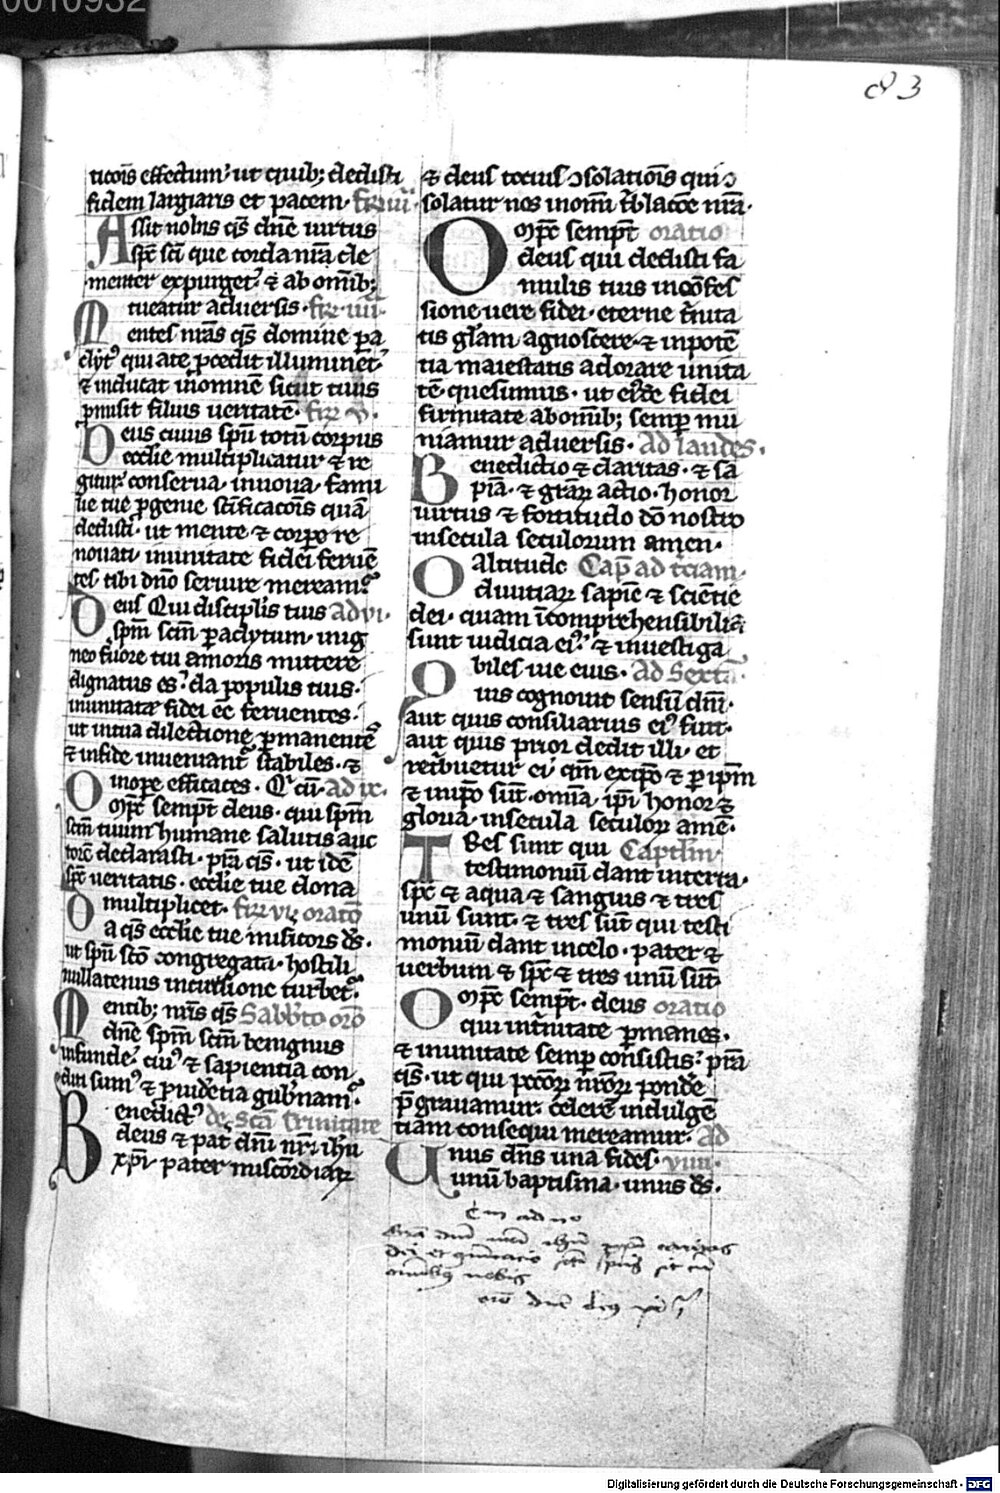 0010932
83
ticōis effectum: ut quib; dedisti
fidem largiaris et pacem. fr̄ iii.
Assit nobis q̄s dn̄e uirtus
spc̄ sc̄i que corda nr̄a cle
menter expurget: ⁊ ab om̄ib;
tueatur aduersis. fr̄ iiii.
Mentes nr̄as q̄s domine pa
clyt᷒ qui a te ꝓcedit illuminet:
⁊ inducat in omnē sicut tuus
ꝓmisit filius ueritatē. fr̄ v.
Deus cuius sp̄u totū corpus
ecclīe multiplicatur ⁊ re
gitur: conserua in noua famī
lie tue ꝓgenie sc̄ificacōis quā
dedisti. ut mente ⁊ corpe re
nouati. in unitate fidei feruē
tes. tibi dn̄o seruire mereamr̄.
Deus Qui discipl̄is tuis ad vi.
spm̄ scm̄ paclytum. in ig
neo fuore tui amoris mittere
dignatus es: da populis tuis.
in unitate fidei ēē feruentes.
ut in tua dilectione ꝑmanentē
⁊ in fide inueniant᷒ stabiles. ⁊
in oꝑe efficaces. Qi cū. ad ix.
Omp̄c sempt̄ deus. qui spm̄
scm̄ tuum humane salutis auc
torē declarasti. pr̄a q̄s. ut idē
spc̄ ueritatis. ecclīe tue dona
multiplicet. fr̄ vi. orato
Da q̄s ecclīe tue misicors ds̄.
ut sp̄u sc̄o congregata. hostili
nullatenus incursione turbet᷒.
Mentib; nr̄is q̄s Sabb̄to orō
dn̄e spm̄ scm̄ benignus
infunde: cui᷒ ⁊ sapientia con
diti sum᷒ ⁊ ꝓuidētia gub̄namr̄.
Benedict᷒ de sc̄a trinitate
deus ⁊ pat̄ dn̄i nr̄i ih̄u
xp̄i. pater mis̄cordiaꝝ
⁊ deus tocius ↄsolationis qui ↄ
solatur nos in om̄i t̄blacōe nr̄a.
Omp̄c sempt̄ oratio
deus qui dedisti fa
mulis tuis in cōfes
sione uere fidei. eterne t̄nita
tis gl̄am agnoscere. ⁊ in potē
tia maiestatis adorare unita
tē. quesumus. ut ei᷒dē fidei
firmitate ab om̄ib; semꝑ mu
niamur aduersis. Ad laudes.
Benedictio ⁊ claritas. ⁊ sa
pīa. ⁊ graꝝ actio. honor
uirtus ⁊ fortitudo dō nostro
in secula seculorum amen.
O altitudo Cap̄ ad t̄ciam.
diuitiaꝝ sapiē ⁊ sciētie
dei. quam īcomprehensibilia
sunt iudicia ei᷒. ⁊ inuestiga
biles uie eius. Ad Sextā.
Quis cognouit sensū dn̄i.
aut quis consiliarius ei᷒ fuit.
aut quis prior dedit illi. et
retribuetur ei. qm̄ ex ip̄o ⁊ ꝑ ipm̄
⁊ in ip̄o sūt. omīa. ip̄i honor ⁊
gloria. in secula seculoꝝ amē.
Tres sunt qui Captlm̄
testimoniū dant in terra.
spc̄ ⁊ aqua ⁊ sanguis ⁊ tres
unū sunt. ⁊ tres sūt qui testi
moniū dant in celo. pater ⁊
uerbum ⁊ spc̄ ⁊ tres unū sūt.
Omp̄c sempt̄. deus oratio
qui in t̄nitate ꝑmanes.
⁊ in unitate semꝑ consistis: pr̄a
q̄s. ut qui pccōꝝ nr̄oꝝ pondē
p̄grauamur. celerē indulgē
tiam consequi mereamur. Ad
Unus dn̄s una fides. viiii.
unū baptisma. unus ds̄.
Cm ad no
Gr̄a dn̄i nr̄i ih̄u xp̄i caritas
dei et ꝯmunicatio sc̄i sp̄us sit cū
omnibus uobis
orō
Digitalisierung gefördert durch die Deutsche Forschungsgemeinschaft - DFG